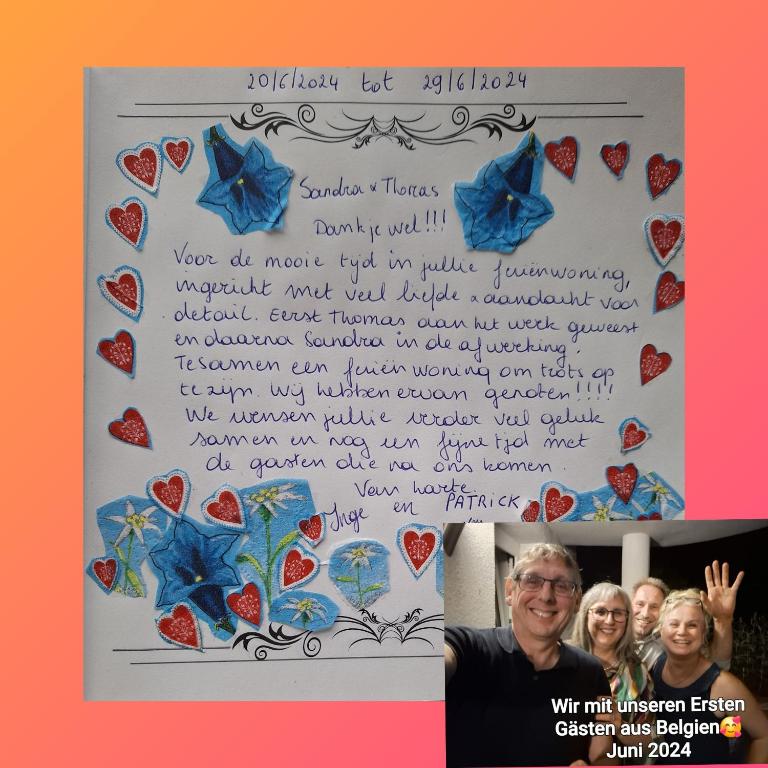 20/6/2024 tot 29/6/2024
Sandra & Thomas
Dankjewel!!!
Voor de mooie tijd in jullie feriënwoning,
ingericht met veel liefde & aandacht voor
detail. Eerst Thomas aan het werk geweest
en daarna Sandra in de afwerking.
Tesamen een feriënwoning om trots op
te zijn. Wij hebben ervan genoten!!!!
We wensen jullie verder veel geluk
samen en nog een fijne tijd met
de gasten die na ons komen.
Van harte
Inge en PATRICK
Wir mit unseren Ersten
Gästen aus Belgien🥰
Juni 2024